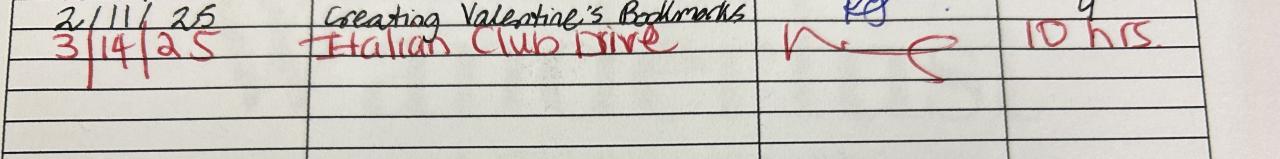 2/11/25 Creating Valentine's Bookmarks
3/14/25 Italian Club Drive 10 hrs.